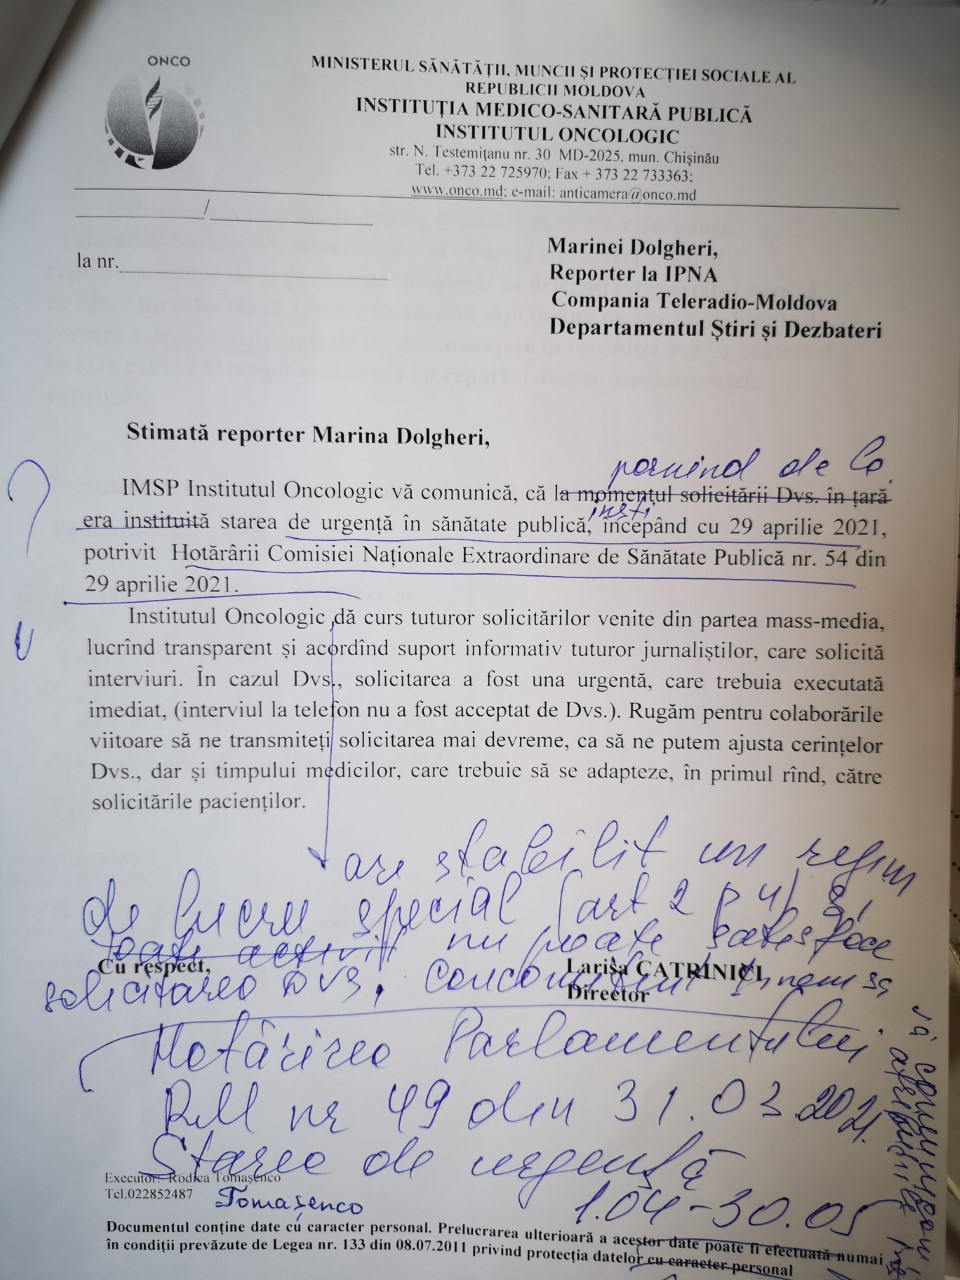 ONCO
MINISTERUL SĂNĂTĂŢII, MUNCII ŞI PROTECŢIEI SOCIALE AL
REPUBLICII MOLDOVA
INSTITUŢIA MEDICO-SANITARĂ PUBLICĂ
INSTITUTUL ONCOLOGIC
str. N. Testemiţanu nr. 30 MD-2025, mun. Chişinău
Tel. +373 22 725970; Fax + 373 22 733363;
www.onco.md; e-mail: anticamera@onco.md
/
la nr.
Marinei Dolgheri,
Reporter la IPNA
Compania Teleradio-Moldova
Departamentul Ştiri şi Dezbateri
Stimată reporter Marina Dolgheri,
pornind de la
?
IMSP Institutul Oncologic vă comunică, că la momentul solicitării Dvs. în ţară
insti
era instituită starea de urgenţă în sănătate publică, începând cu 29 aprilie 2021,
potrivit Hotărârii Comisiei Naţionale Extraordinare de Sănătate Publică nr. 54 din
29 aprilie 2021.
Institutul Oncologic dă curs tuturor solicitărilor venite din partea mass-media,
lucrînd transparent şi acordînd suport informativ tuturor jurnaliştilor, care solicită
interviuri. În cazul Dvs., solicitarea a fost una urgentă, care trebuia executată
imediat, (interviul la telefon nu a fost acceptat de Dvs.). Rugăm pentru colaborările
viitoare să ne transmiteţi solicitarea mai devreme, ca să ne putem ajusta cerinţelor
Dvs., dar şi timpului medicilor, care trebuie să se adapteze, în primul rînd, către
solicitările pacienţilor.
are stabilit un regim
de lucru special (art 2 p 4) şi
toate activit nu poate satisface
Cu respect,
Larisa CATRINICI,
solicitarea DVS, concomitent ţinem să
Director
Hotărîrea Parlamentului
RM nr 49 din 31.03.2021.
Starea de urgenţă
Executor: Rodica Tomaşenco
Tel.022852487
Tomaşenco
1.04-30.05
vă comunicăm
Documentul conţine date cu caracter personal. Prelucrarea ulterioară a acestor date poate fi efectuată numai
în condiţii prevăzute de Legea nr. 133 din 08.07.2011 privind protecţia datelor cu caracter personal